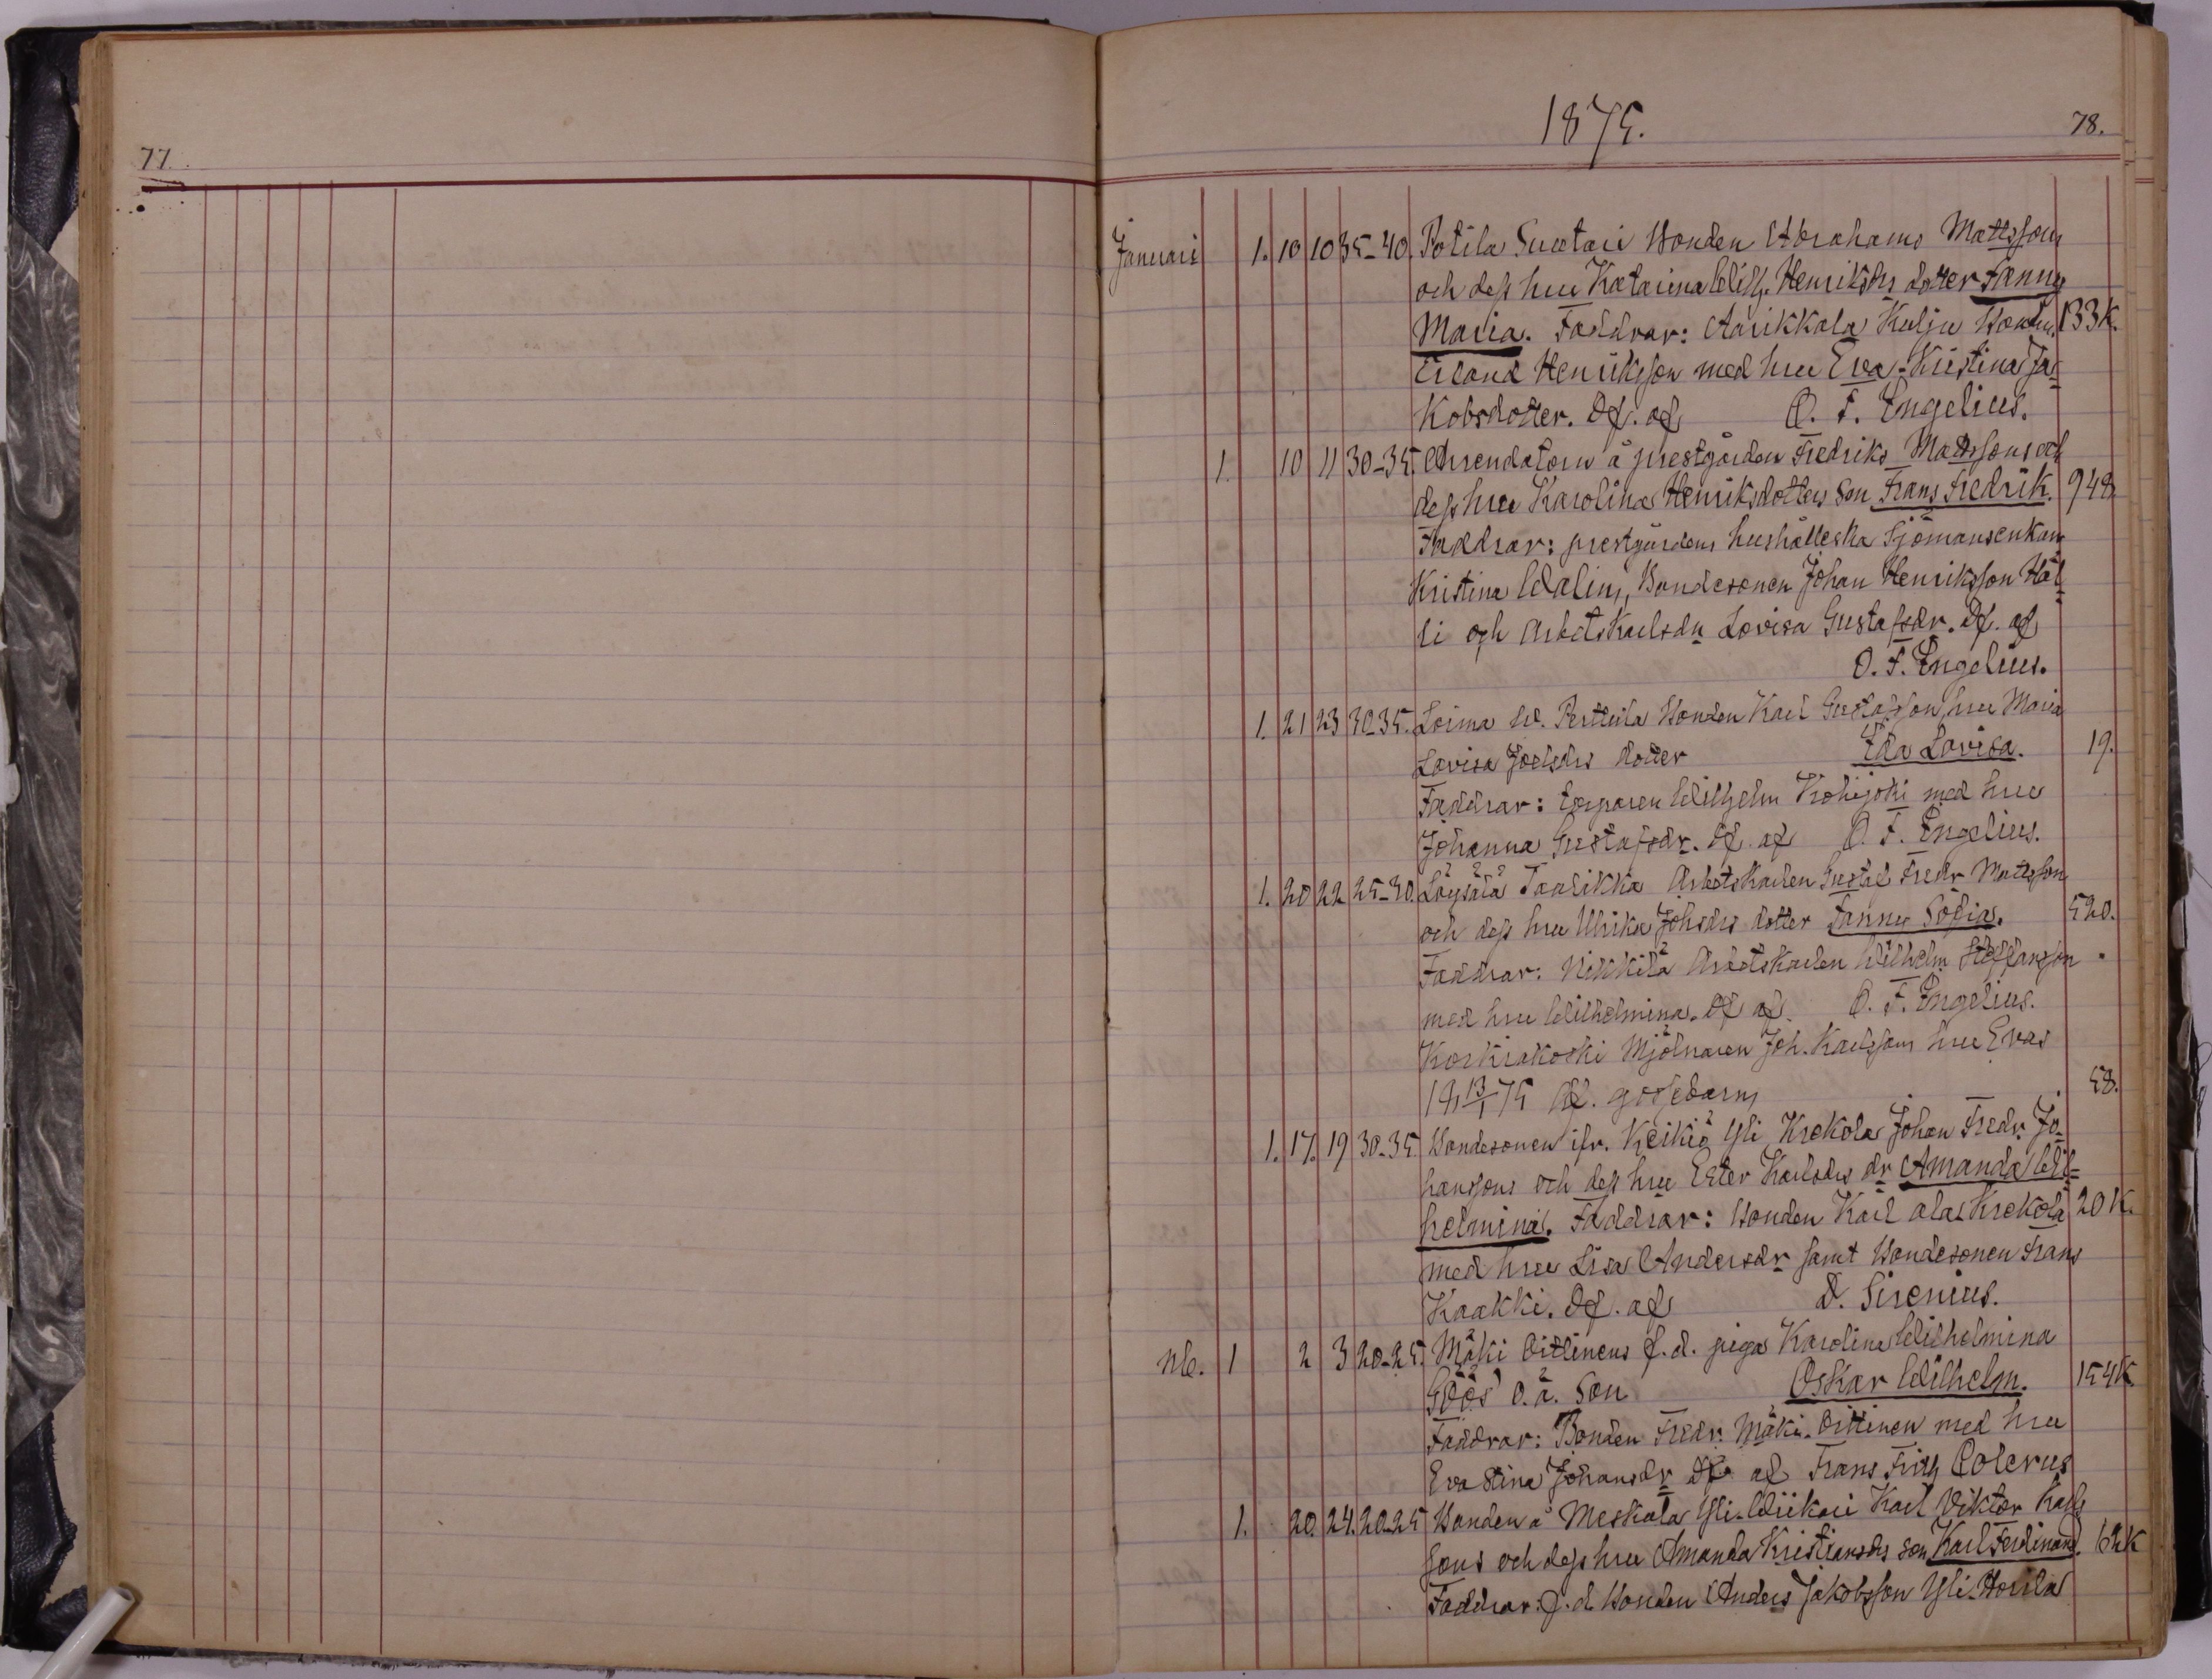 77.
1875.
78.
Januari 1. 10 10 35-40. Potila Suutari Bonden Abrahams Mattsson
och dess hru Katarina Henriksdrs dotter Fanny
Maria. Faddrar: Aarikkala Kulju Bonden 133 K.
Erland Henriksson med hru Eva Kristina Ja-
kobsdotter. Df. af O. F. Engelius.
1. 10 11 30-35. Arrendatorn å prestgården Fredriks Mattssons och
dess hru Karolina Henriksdotters Son Frans Fredrik. 948
Faddrar: prestgårdens hushålleska Sjömansenkan
Kristina Walin, Bondesonen Johan Henriksson Häl-
li och Arbetskarlsdn Lovisa Gustafsdr. Df. af
O. F. Engelius.
1. 21 23 30-35. Loima Perttula Bonden Karl Gustafson hru Maria
Lovisa Joelsdrs dotter Ida Lovisa. 19.
Faddrar: Torparen Wilhelm Kohijoki med hru
Johanna Gustafsdr. Df. af O. F. Engelius.
1. 20 22 25-30. Löysälä Taalikka Arbetskarlen Gustaf Fredr Mattsson
och dess hru Ulrika Johsdrs dotter Fanny Sofia. 520.
Faddrar: Nikkilä Arbetskarlen Wilhelm Steffansson
med hru Wilhelmina. Df af. O. F. Engelius.
Korkiakoski Mjölnaren Joh. Karlssons hru Evas
18 13/1 75 Df. gossebarn 58.
1. 17. 19 30-35 Bondesonen ifr. Keikiö Yli Krekola Johan Fredr Jo-
hanssons och dess hru Ester Karlsdrs dr Amanda Wil-
helmina. Faddrar: Bonden Karl ala Krekola 20 K.
med hru Lisa Andersdr samt Bondesonen Frans
Kaakki. Df. af D. Sirenius.
Nb. 1 2 3 20-25. Mäki Oittinens f.d. piga Karolina Wilhelmina
Göös' o.ä. Son Oskar Wilhelm. 154 K
Faddrar: Bonden Fredr. Mäki-Oittinen med hru
Eva Stina Johansdr Df af Frans Frith Polerus
1. 20. 24. 20-25 Bonden å Meskala Yli-Wiikari Karl Viktor Karls-
sons och dess hru Amanda Kristiansdrs son Karl Ferdinand. 62 K
Faddrar: f.d. Bonden Anders Jakobsson Yli-Houla